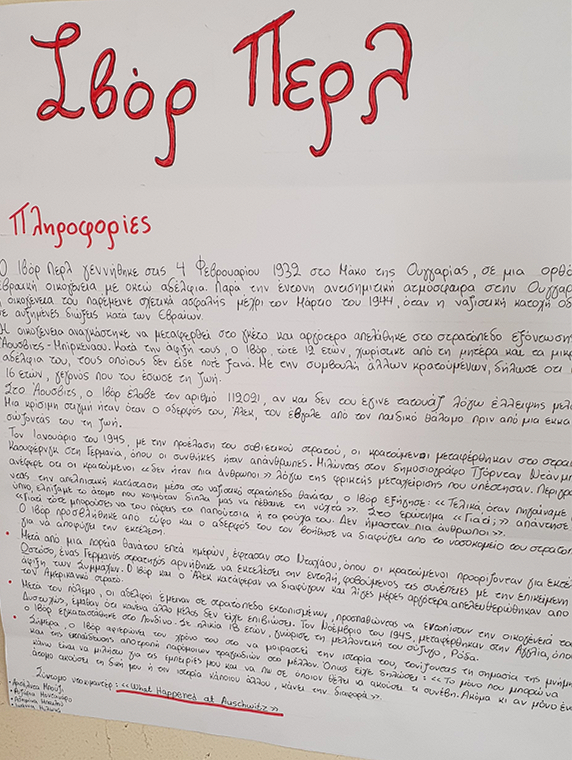 Ιβόρ Περλ
Πληροφορίες
Ο Ιβόρ Περλ γεννήθηκε στις 4 Φεβρουαρίου 1932 στο Μάκο της Ουγγαρίας, σε μια ορθό
εβραϊκή οικογένεια με οκτώ αδέλφια. Παρά την έντονη αντισημιτική ατμόσφαιρα στην Ουγγαρ
η οικογένεια του παρέμεινε σχετικά ασφαλής μέχρι τον Μάρτιο του 1944, όταν η ναζιστική κατοχή οδ
σε αυξημένες διώξεις κατά των Εβραίων.
Η οικογένεια αναγκάστηκε να μεταφερθεί στο γκέτο και αργότερα απελάθηκε στο στρατόπεδο εξόντωσης
Άουσβιτς-Μπίρκεναου. Κατά την άφιξή τους, ο Ιβόρ, τότε 12 ετών, χωρίστηκε από τη μητέρα και τα μικρ
αδέλφια του, τους οποίους δεν είδε ποτέ ξανά. Με την συμβουλή άλλων κρατουμένων, δήλωσε ότι
16 ετών, γεγονός που του έσωσε τη ζωή.
Στο Άουσβιτς, ο Ιβόρ έλαβε τον αριθμό 112021, αν και δεν του έγινε τατουάζ λόγω έλλειψης μελα
Μια κρίσιμη στιγμή ήταν όταν ο αδερφός του, Άλεκ, τον έβγαλε από τον παιδικό θάλαμο πριν από μια εκκα
σώζοντας του τη ζωή.
Τον Ιανουάριο του 1945, με την προέλαση του σοβιετικού στρατού, οι κρατούμενοι μεταφέρθηκαν στο στρα
Κάουφερινγκ στη Γερμανία, όπου οι συνθήκες ήταν απάνθρωπες. Μιλώντας στον δημοσιογράφο Τζόρνταν Ντάνμπ
ανέφερε ότι οι κρατούμενοι «δεν ήταν πια άνθρωποι» λόγω της φρικτής μεταχείρισης που υπέστησαν. Περιγρά
νας την απελπιστική κατάσταση μέσα στο ναζιστικό στρατόπεδο θανάτου, ο Ιβόρ εξήγησε: «Τελικά όταν πηγαίναμε
ύπνο, ελπίζαμε το άτομο που κοιμόταν δίπλα μας να πέθαινε τη νύχτα». Στο ερώτημα «Γιατί;» απάντησε
«Γιατί τότε μπορούσες να του πάρεις τα παπούτσια ή τα ρούχα του. Δεν ήμασταν πια άνθρωποι».
Ο Ιβόρ προσβλήθηκε από τύφο και ο αδερφός του τον βοήθησε να διαφύγει από το νοσοκομείο του στρατοπ
για να αποφύγει την εκτέλεση.
• Μετά από μια πορεία θανάτου επτά ημερών, έφτασαν στο Νταχάου, όπου οι κρατούμενοι προορίζονταν για εκτέλ
Ωστόσο, ένας Γερμανός στρατηγός αρνήθηκε να εκτελέσει την εντολή, φοβούμενος τις συνέπειες με την επικείμενη
άφιξη των Συμμάχων. Ο Ιβόρ και ο Άλεκ κατάφεραν να διαφύγουν και λίγες μέρες αργότερα απελευθερώθηκαν από
τον Αμερικανικό στρατό.
• Μετά τον πόλεμο, οι αδελφοί έμειναν σε στρατόπεδο εκτοπισμένων, προσπαθώντας να εντοπίσουν την οικογένειά του
Δυστυχώς, έμαθαν ότι κανένα άλλο μέλος δεν είχε επιβιώσει. Τον Νοέμβριο του 1945, μεταφέρθηκαν στην Αγγλία, όπου
ο Ιβόρ εγκαταστάθηκε στο Λονδίνο. Σε ηλικία 18 ετών, γνώρισε τη μελλοντική του σύζυγο, Ρόδα.
• Σήμερα, ο Ιβόρ αφιερώνει τον χρόνο του στο να μοιραστεί την ιστορία του, τονίζοντας τη σημασία της μνήμη
και της εκπαίδευσης αποτροπή παρόμοιων τραγωδιών στο μέλλον. Όπως είχε δηλώσει: «Το μόνο που μπορώ να
κάνω είναι να μιλήσω για τις εμπειρίες μου και να πω σε όποιον θέλει να ακούσει τι συνέβη. Ακόμα κι αν μόνο έν
άτομο ακούσει τη δική μου ή την ιστορία κάποιου άλλου, κάνει την διαφορά».
Σύντομο ντοκιμαντέρ: «What Happened at Auschwitz»